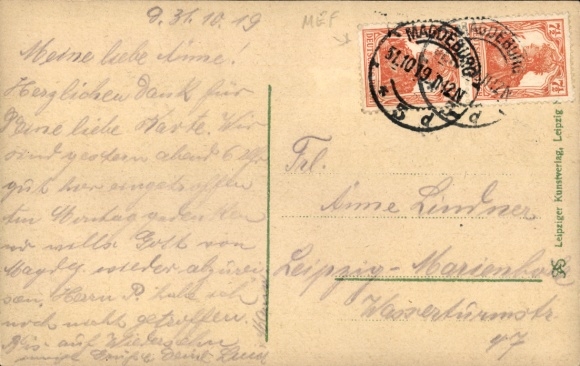 d. 31.10.19
MEF
Meine liebe Anne!
Herzlichen Dank für
Deine liebe Karte. Wir
sind gestern abend 6 Uhr
gut hier eingetroffen
Montag gedenken
wir wills Gott von
Magdg. wieder abzurei
sen. Herrn P. habe ich
noch nicht getroffen.
Bis auf Wiedersehn
Grüße Deine
MAGDEBURG
31.10.19.11-12V
MAGDEBURG
DEUTSCHES
7½
7½
Frl.
Anne Lindner
Leipzig-Marienbr
Wasserturmstr.
47
Leipziger Kunstverlag, Leipzig